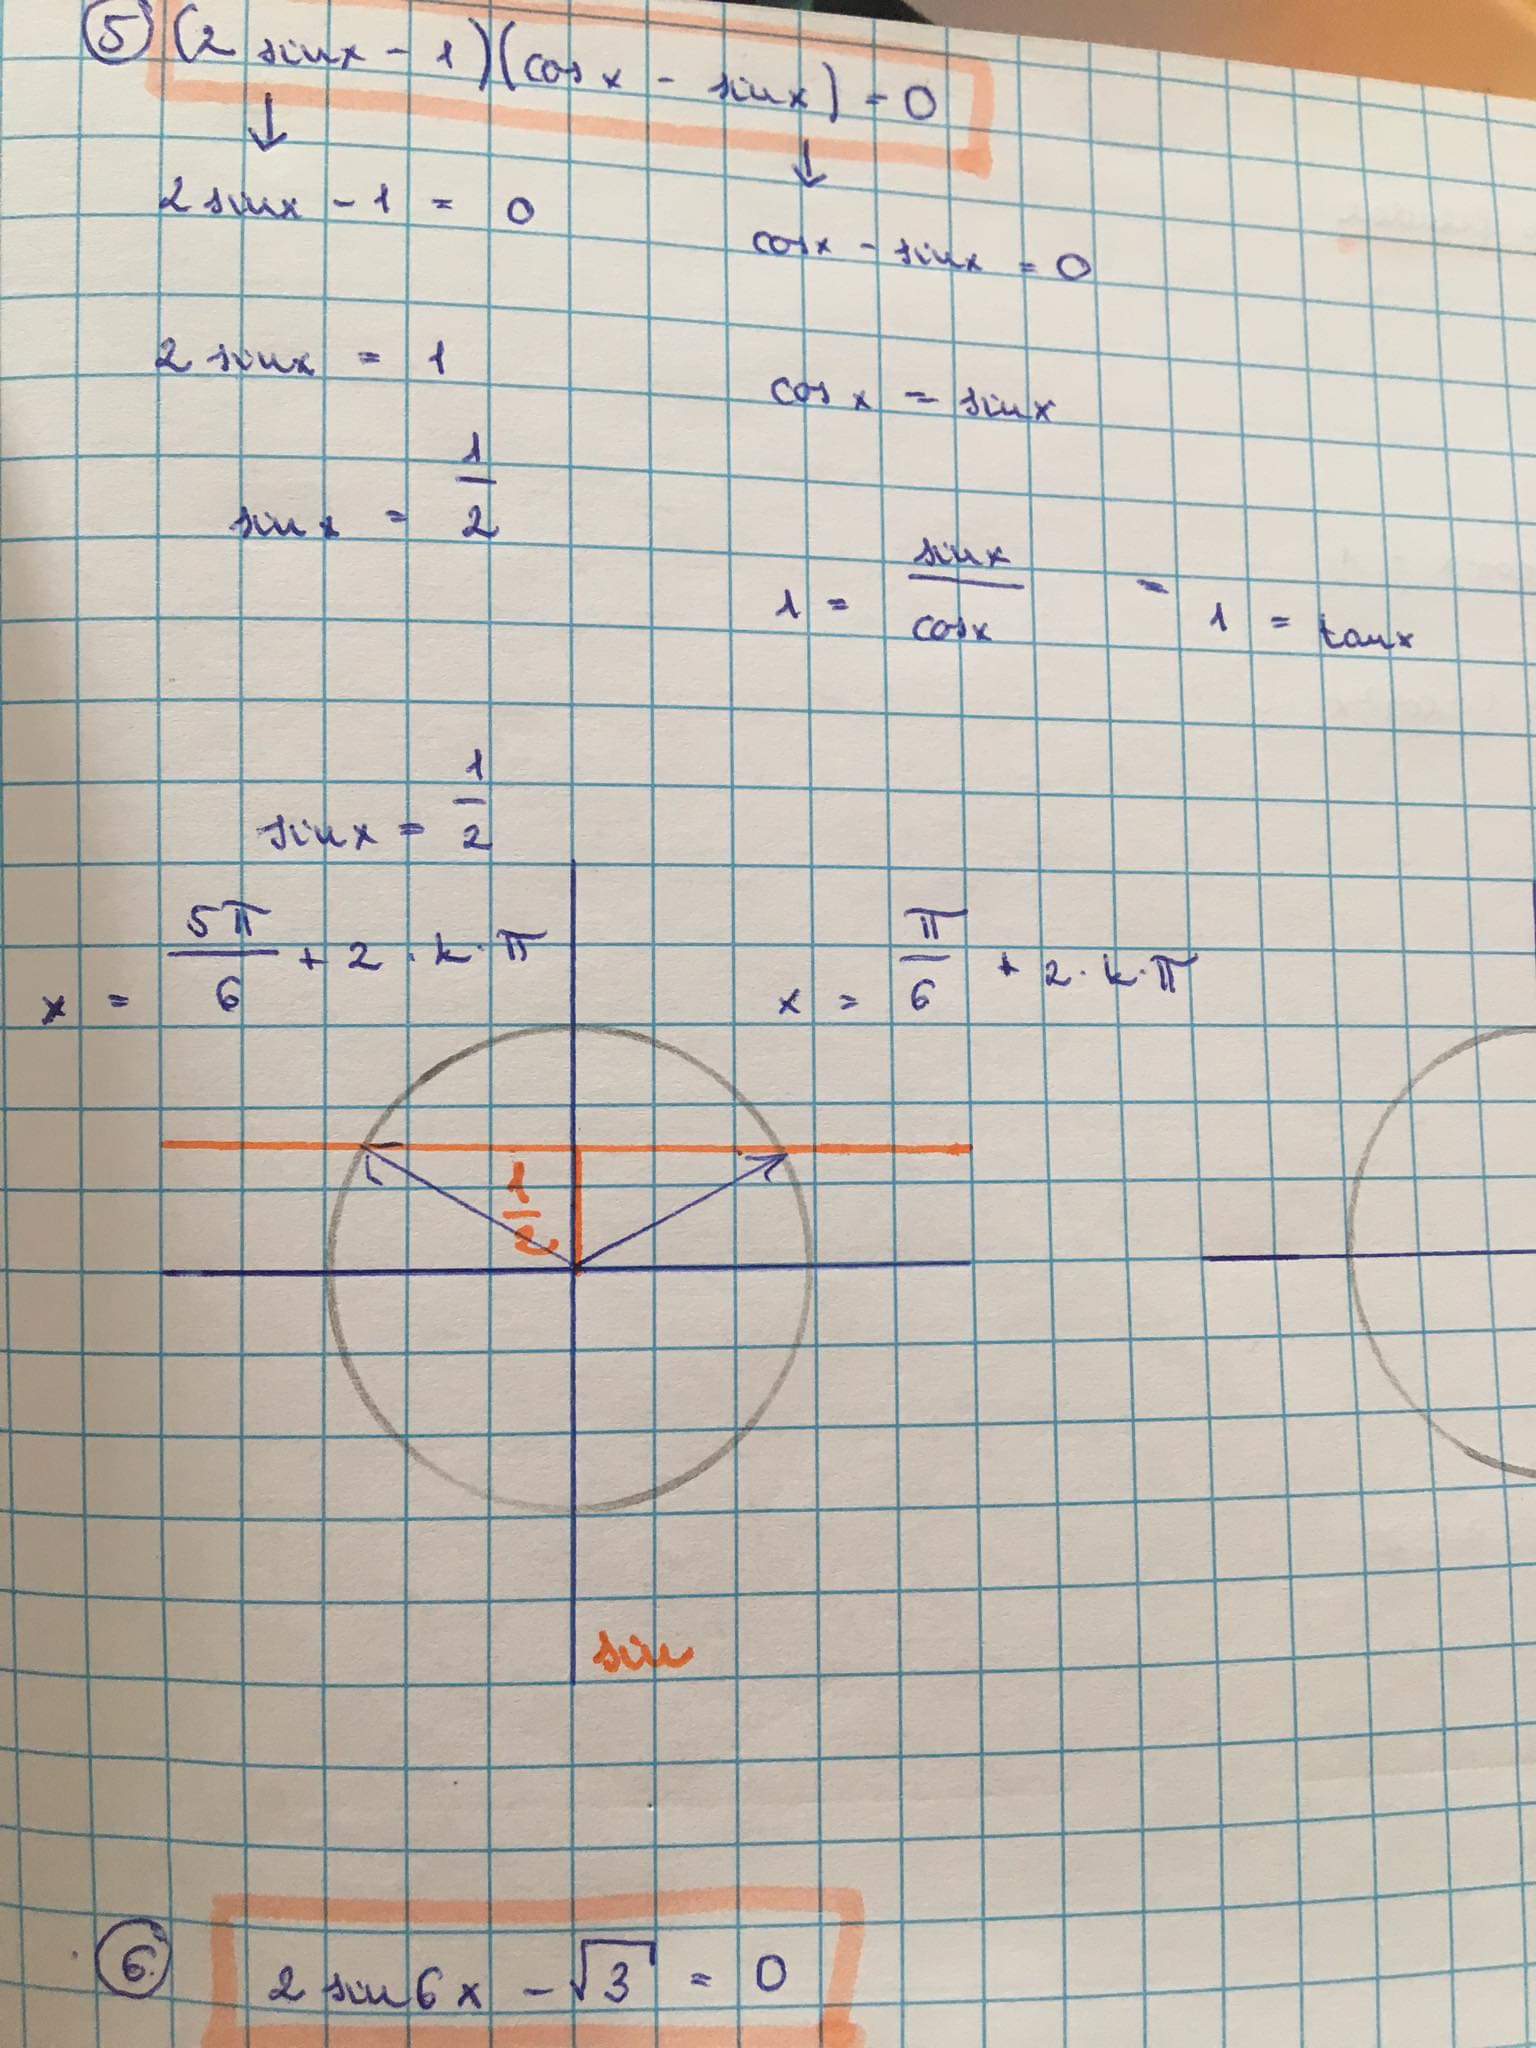 5 (2 sinx - 1)(cosx - sinx) = 0
↓ ↓
2 sinx - 1 = 0
cosx - sinx = 0
2 sinx = 1
cosx = sinx
sinx = 1/2
1 = sinx/cosx = 1 = tanx
sinx = 1/2
x = 5π/6 + 2·k·π
x = π/6 + 2·k·π
1/2
sin
6. 2 sin6x - √3 = 0